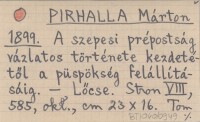 PIRHALLA Márton
1899. A szepesi prépostság
vázlatos története kezdeté-
től a püspökség felállítá-
sáig. — Lőcse. Stron VIII,
585, okl., cm 23 x 16. Tom